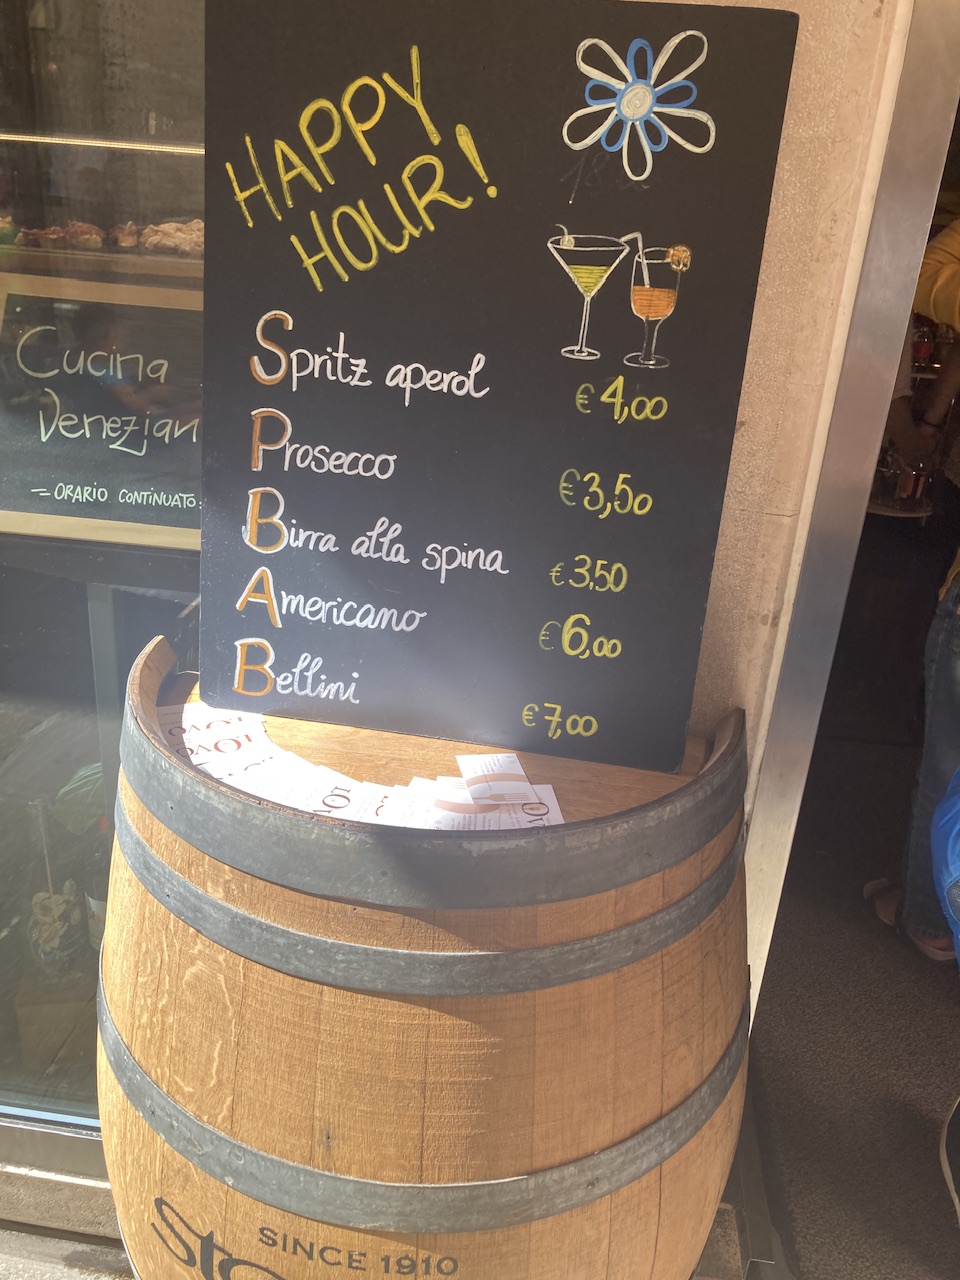 HAPPY
HOUR!
Spritz aperol €4,00
Prosecco €3,50
Birra alla spina €3,50
Americano €6,00
Bellini €7,00
Cucina
Venezian
- ORARIO CONTINUATO:
SINCE 1910